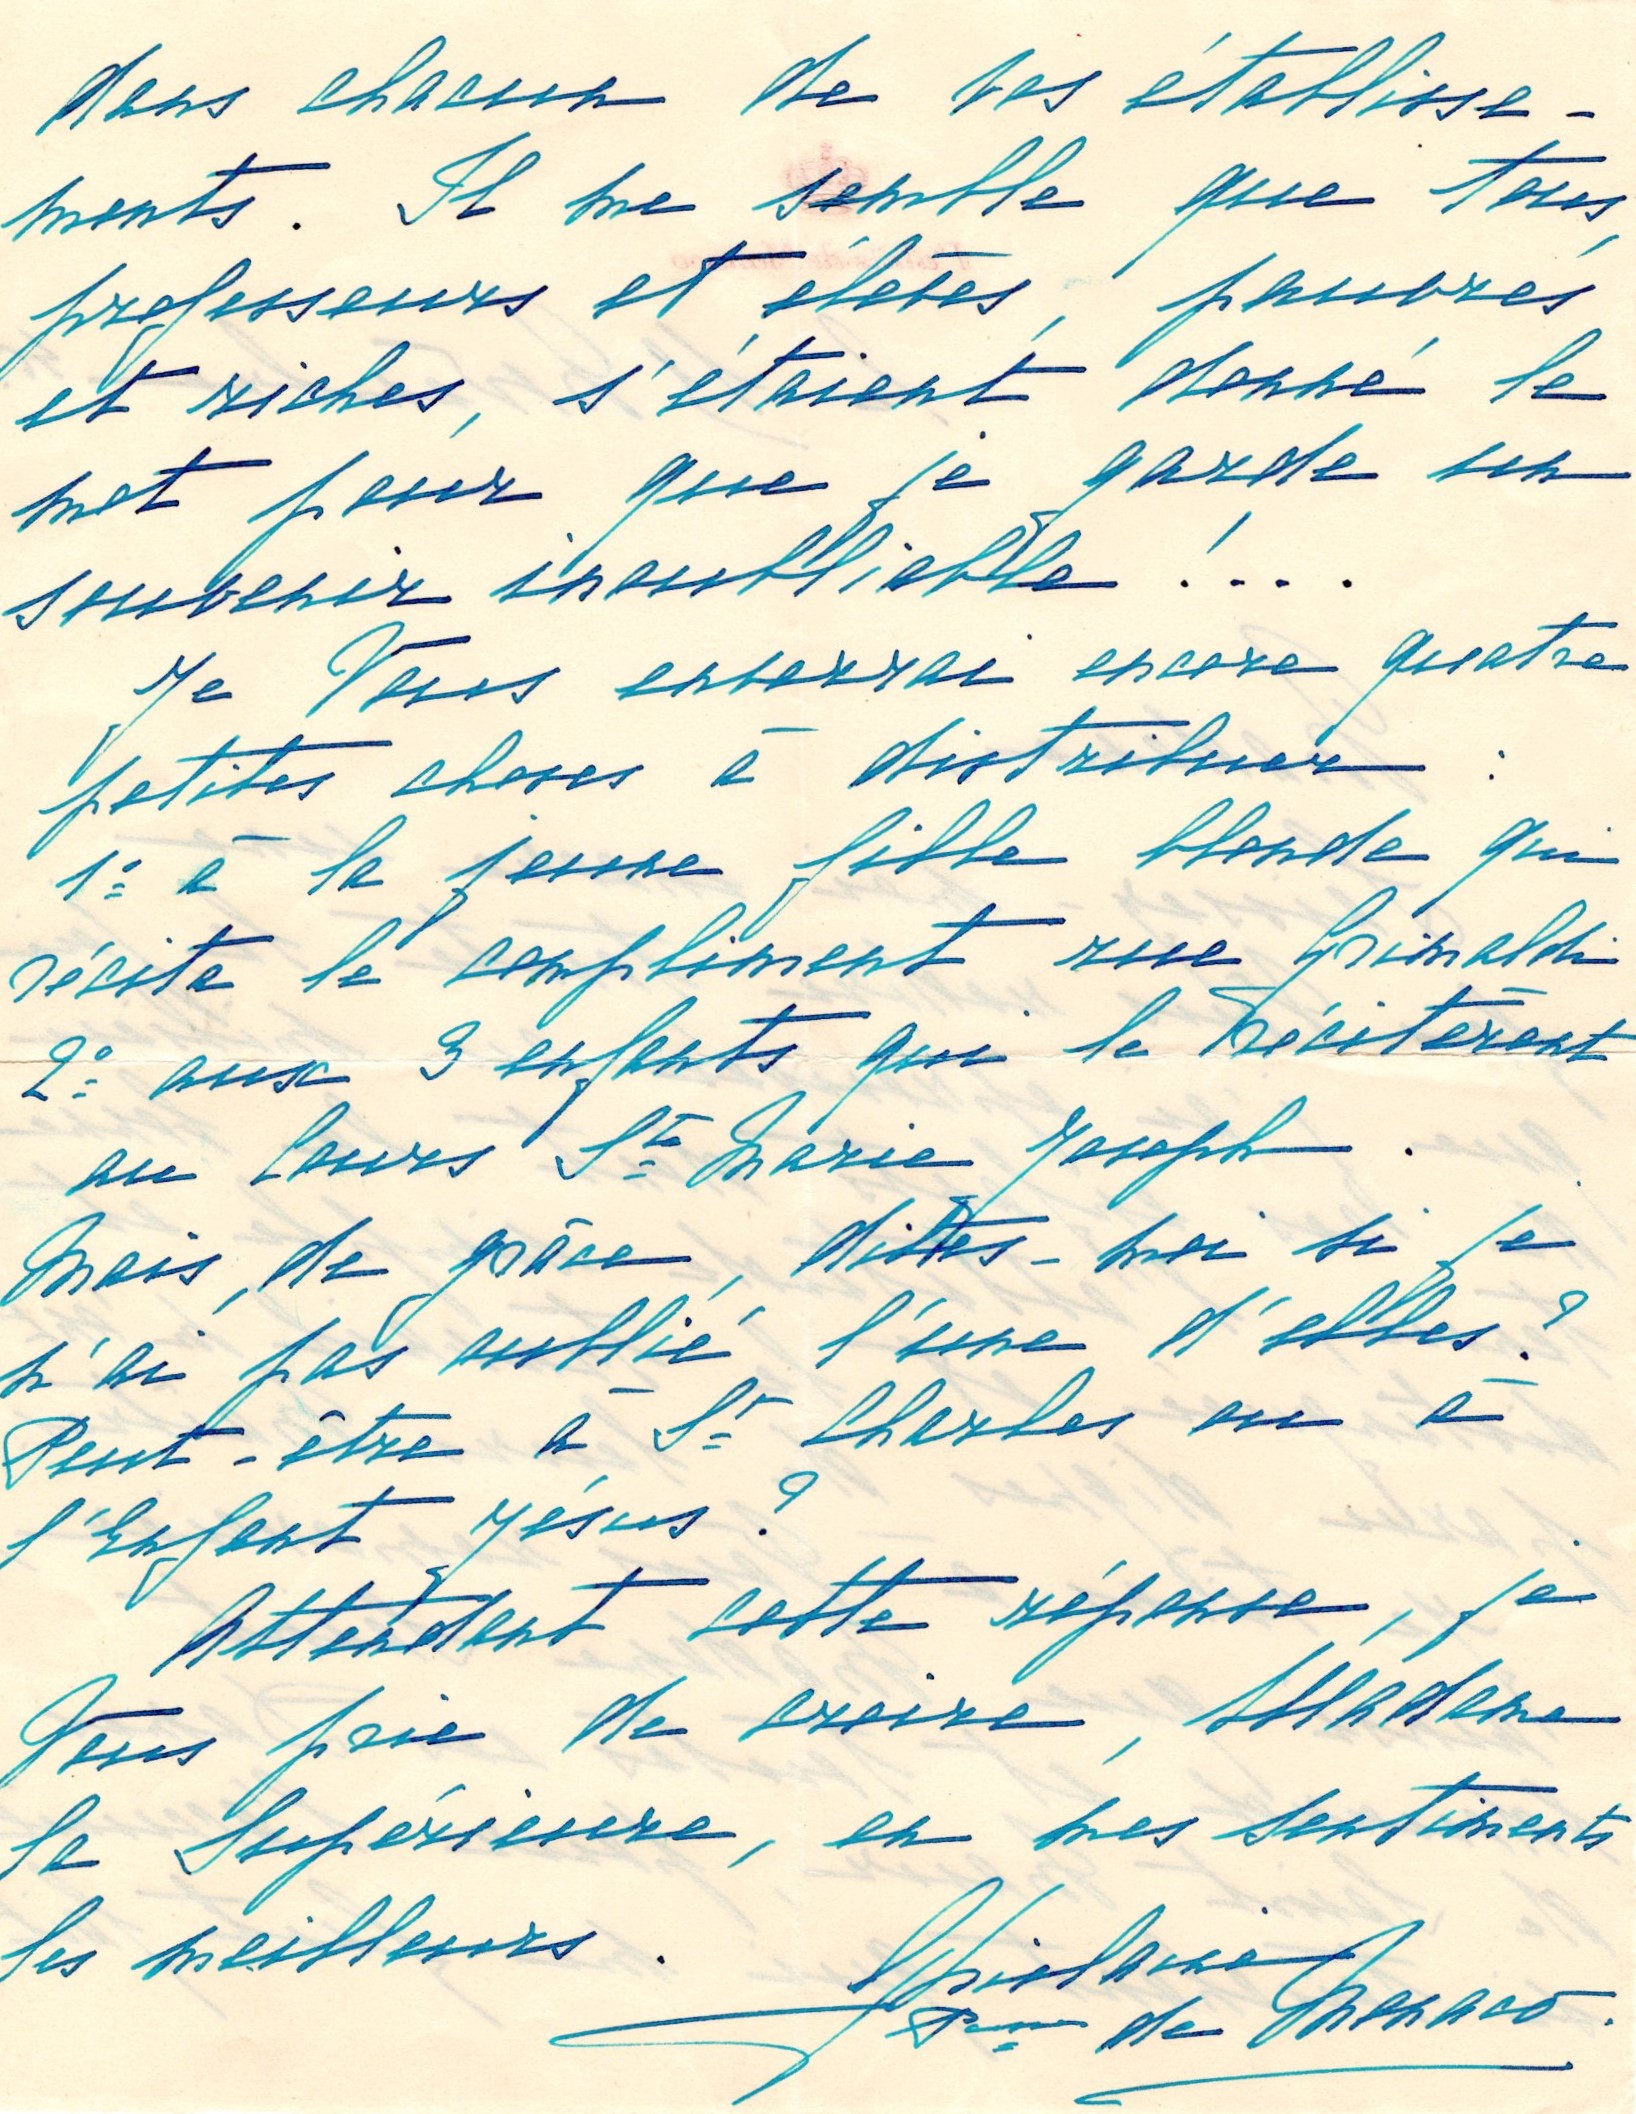 dans chacun de vos établisse-
ments. Il me semble que tous,
professeurs et élèves, pauvres
et riches, s'étaient donné le
mot pour que je garde un
souvenir inoubliable !...
Je Vous enverrai encore quatre
petites choses à distribuer :
1º à la jeune fille blonde qui
récita le compliment rue Grimaldi
2º aux 3 enfants qui le récitèrent
au Cours Ste Marie Joseph.
Mais, de grâce, dites-moi si je
n'ai pas oublié l'une d'elles ?
Peut-être à St Charles ou à
l'Enfant Jésus ?
Attendant cette réponse, je
Vous prie de croire, Madame
la Supérieure, en mes sentiments
les meilleurs.
Ghislaine
Psse de Monaco.